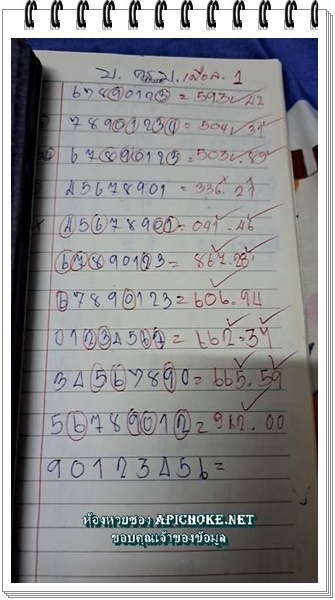 67890123 = 593.42
78901234 = 504.34
67890123 = 503.89
45678901 = 336.21
45678901 = 041.46
67890123 = 867.28
67890123 = 606.94
01234567 = 662.34
34567890 = 665.59
56789012 = 962.00
90123456 =
ห้องหวยซอง APICHOKE.NET
ขอบคุณเจ้าของข้อมูล